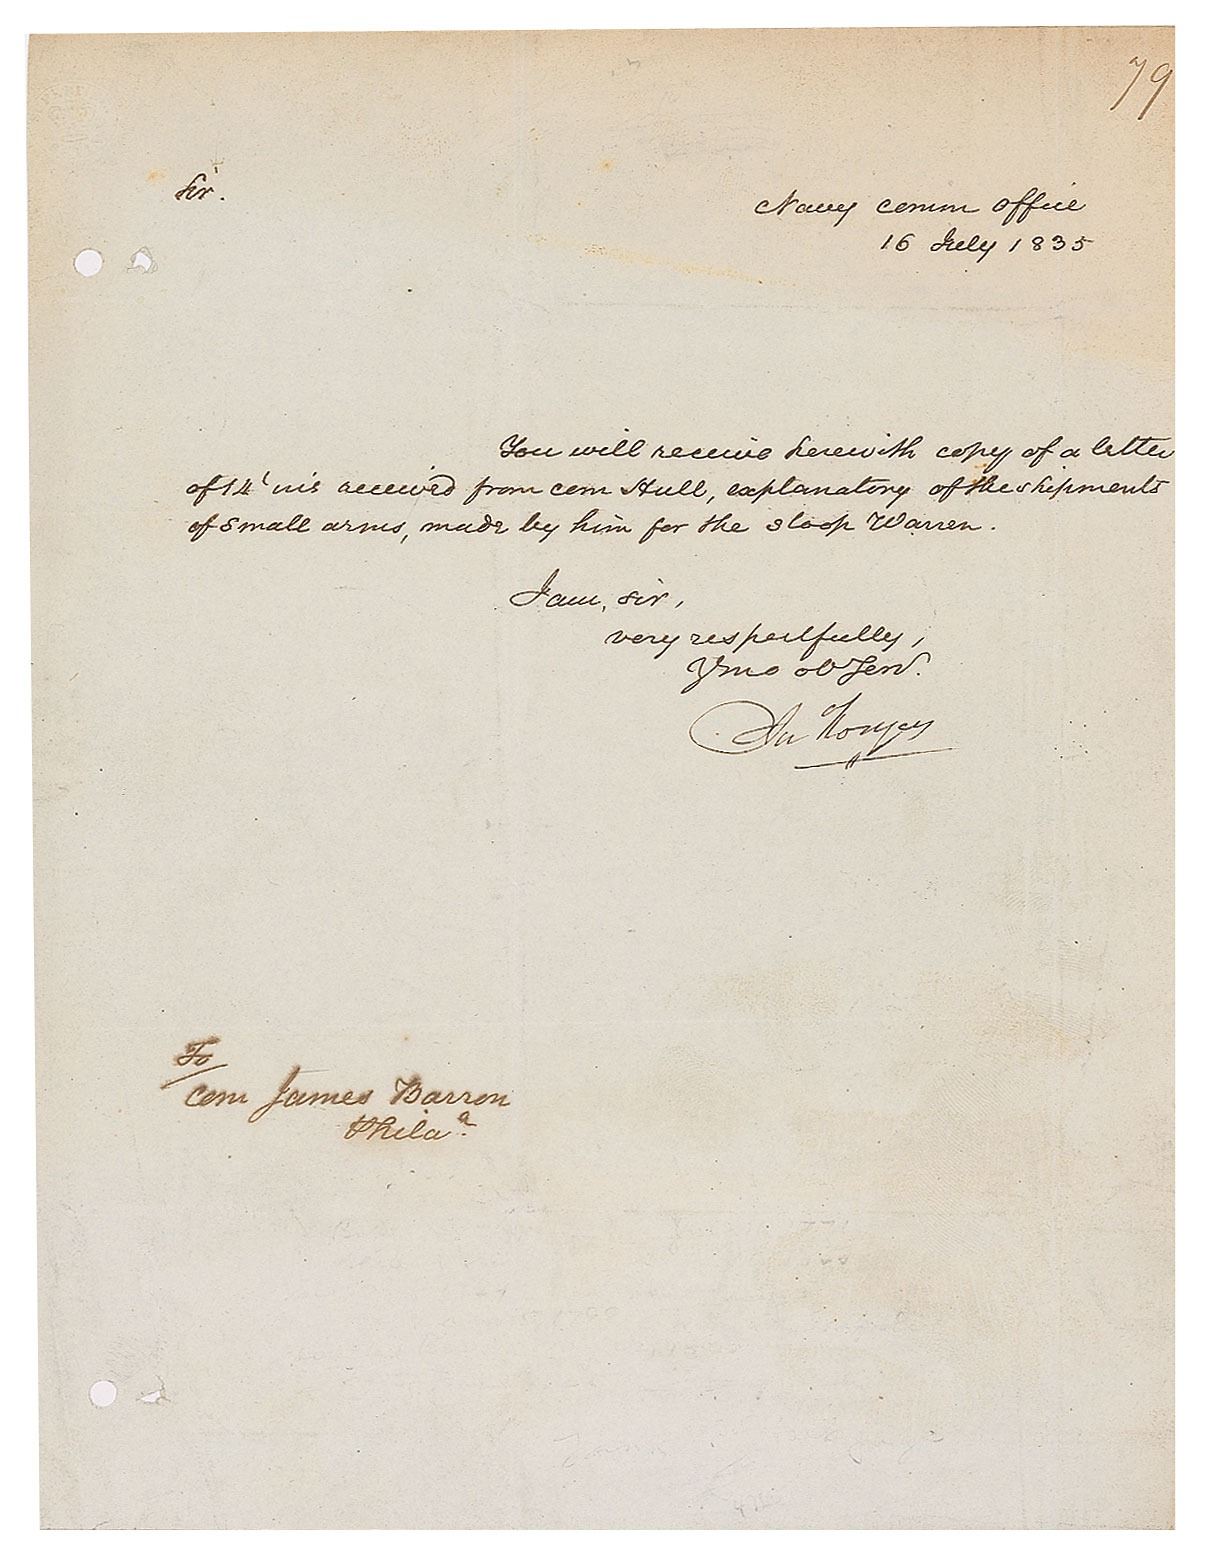 79
Sir.
Navy Comm Office
16 July 1835
You will receive herewith copy of a letter
of 14' ins received from Com Hull, explanatory of the shipments
of small arms, made by him for the sloop Warren.
I am, sir,
very respectfully,
Yr mo ob Serv.
Jn Rodgers
To
Com James Barron
Phila a